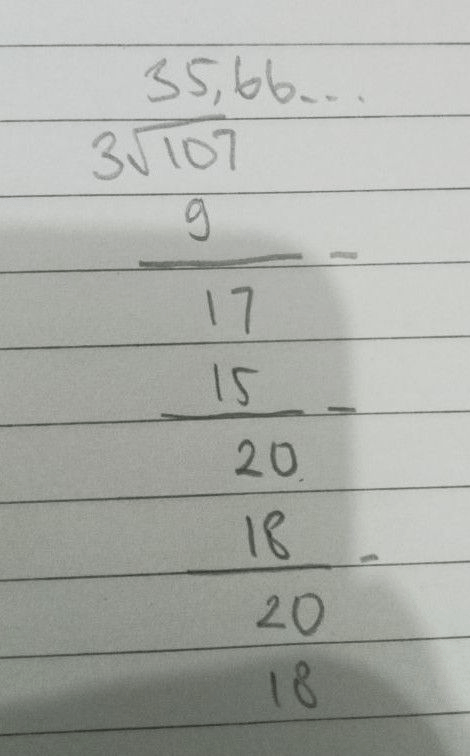 35,66...
3√107
9
-
17
15
-
20
18
-
20
18